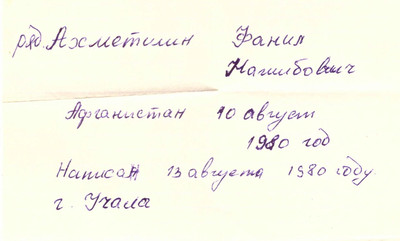 ряд. Ахметшин Фанил
Нагибович
Афганистан 10 август
1980 год
Написан 13 августа 1980 году
г. Учала